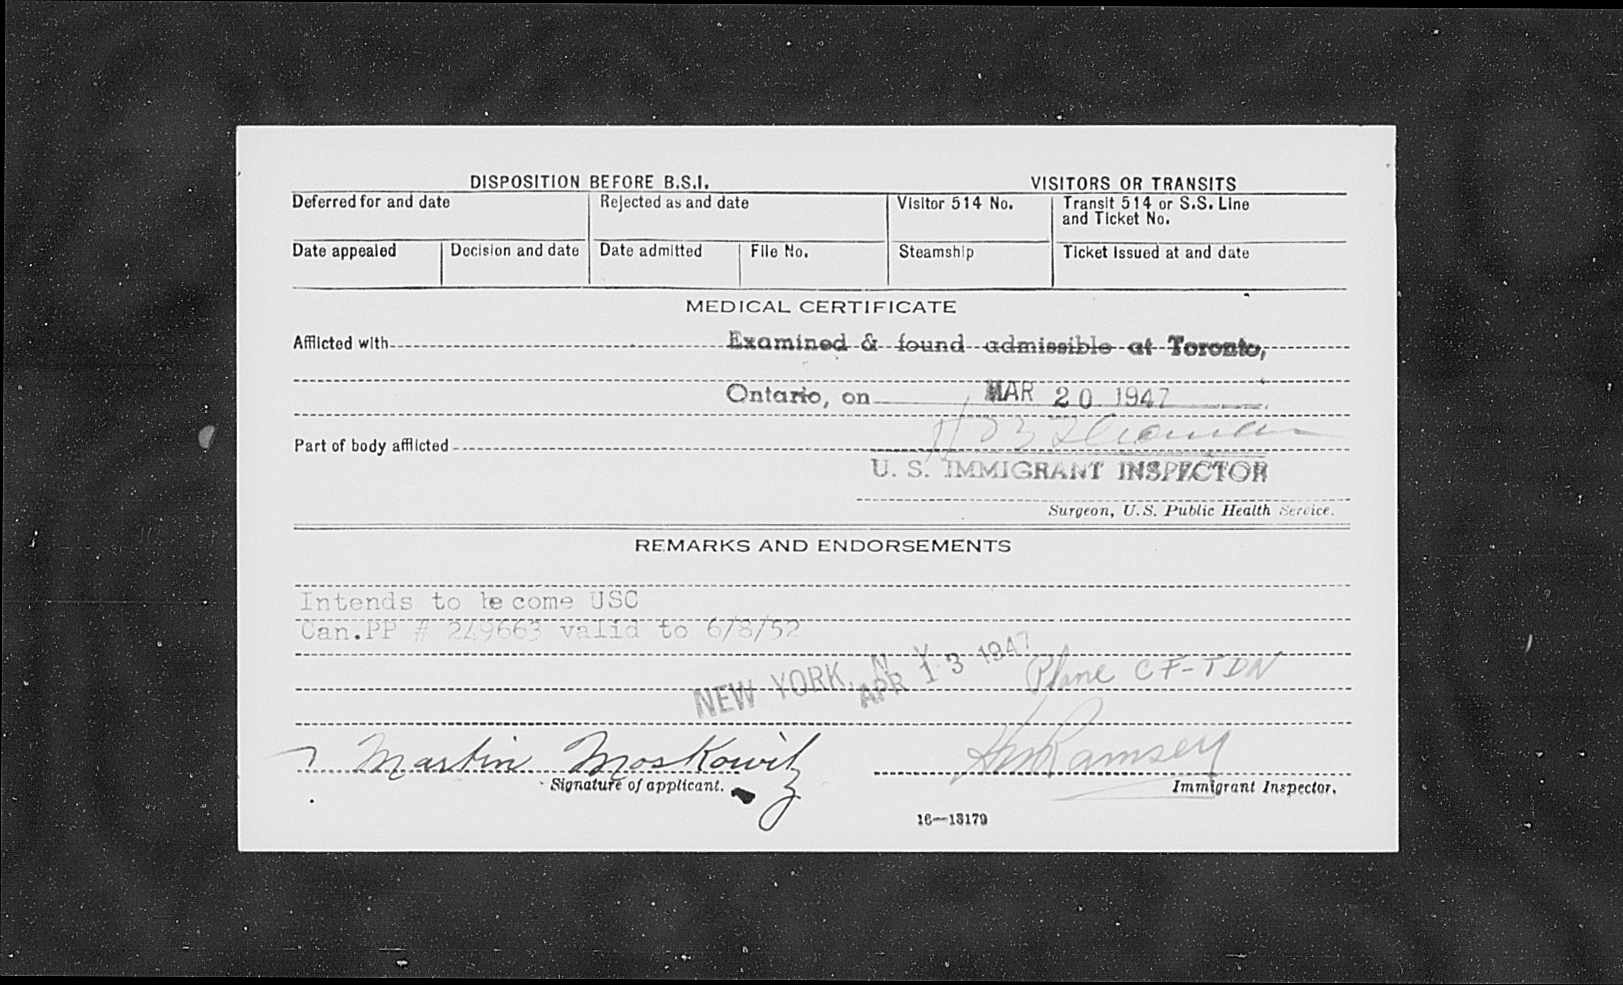 DISPOSITION BEFORE B.S.I. VISITORS OR TRANSITS
Deferred for and date Rejected as and date Visitor 514 No. Transit 514 or S.S. Line
and Ticket No.
Date appealed Decision and date Date admitted File No. Steamship Ticket issued at and date
MEDICAL CERTIFICATE
Afflicted with Examined & found admissible at Toronto,
Ontario, on MAR 20 1947
Part of body afflicted
U. S. IMMIGRANT INSPECTOR
Surgeon, U.S. Public Health Service.
REMARKS AND ENDORSEMENTS
Intends to become USC
Can.PP # 249663 valid to 6/8/52
NEW YORK, N. Y. APR 13 1947 Plane CF-TDN
Martin Moskowitz Ramsey
Signature of applicant. Immigrant Inspector.
16—13179